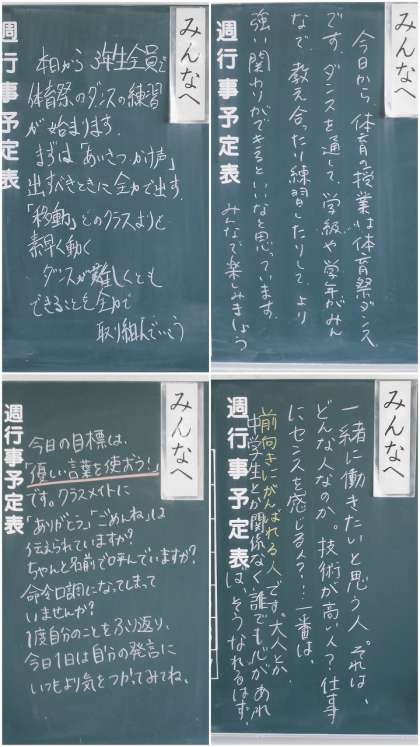 みんなへ
週行事予定表
本日から3年生全員で
体育祭のダンスの練習
が始まります。
まずは「あいさつ」「かけ声」
出すべきときに全力で出す。
「移動」どのクラスよりも
素早く動く
ダンスが難しくとも
できることを全力で
取り組んでいこう
みんなへ
週行事予定表
今日から、体育の授業は体育祭ダンス
です。ダンスを通して、学級や学年がみん
なで、教え合ったり練習したりして、より
強い関わりができるといいなと思っています。
みんなで楽しみましょう
みんなへ
週行事予定表
今日の目標は、
「優しい言葉を使おう!」
です。クラスメイトに
「ありがとう」「ごめんね」は
伝えられていますか?
ちゃんと名前で呼んでいますか?
命令口調になってしまって
いませんか?
1度自分のことをふり返り、
今日1日は自分の発言に
いつもより気をつかってみてね。
みんなへ
週行事予定表
一緒に働きたいと思う人。それは、
どんな人なのか。技術が高い人?仕事
にセンスを感じる人?…一番は、
前向きにがんばれる人です。大人とか
中学生とか関係なく誰でも心があれ
ば、そうなれるはず。